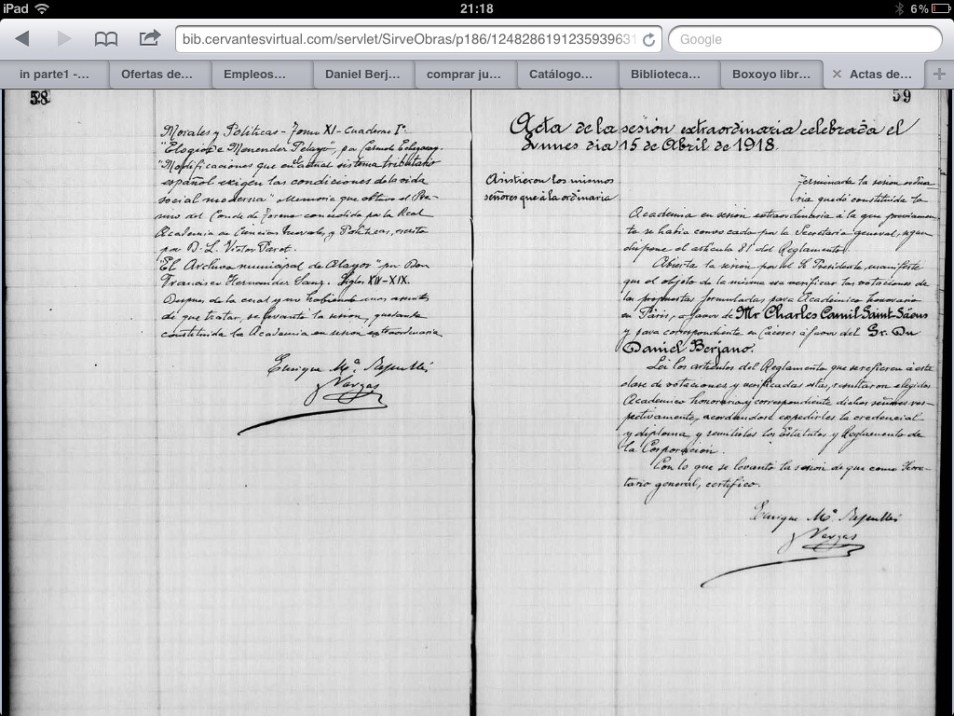 iPad
21:18
6%
bib.cervantesvirtual.com/servlet/SirveObras/p186/12482861912359396
Google
in parte1 -...
Ofertas de...
Empleos...
Daniel Berj...
comprar ju...
Catálogo...
Biblioteca...
Boxoyo libr...
Actas de...
58
Morales y Políticas - Tomo XI - Cuaderno 1º
"Elogio de Menendez Pelayo", por
"Modificaciones que en el actual sistema tributario
español exigen las condiciones de la vida
social moderna" Memoria que obtuvo el Pre-
mio del Conde de Toreno concedido por la Real
Academia en Ciencias Morales y Políticas, escrita
por D. L. Victor Paret.
"El Archivo municipal de Alayor" por Don
Francisco Hernandez Sanz. Siglos XIV-XIX.
Despues de lo cual y no habiendo mas asuntos
de que tratar, se levantó la sesion, quedando
constituida la Academia en sesion extraordinaria
Enrique Mª Repullés
y Vargas
59
Acta de la sesión extraordinaria celebrada el
Lunes dia 15 de Abril de 1918.
Asistieron los mismos
señores que á la ordinaria
Terminada la sesion ordina
ria quedó constituida la
Academia en sesion extraordinaria á la que previamen-
te se habia convocado por la Secretaría general, segun
dispone el artículo 81 del Reglamento.
Abierta la sesion por el Sr Presidente, manifestó
que el objeto de la misma era verificar las votaciones de
las propuestas formuladas para Académico honorario
en Paris, a favor de Mr Charles Camil Saint Säens
y para correspondiente en Cáceres á favor del Sr. Dn
Daniel Berjano.
Leí los artículos del Reglamento que se refieren á esta
clase de votaciones y verificadas estas, resultaron elegidos
Academico honorario y correspondiente dichos señores res-
pectivamente, acordandose expedirles la credencial
y diploma, y remitirles los Estatutos y Reglamento de
la Corporacion.
Con lo que se levantó la sesion de que como Secre-
tario general, certifico.
Enrique Mª Repullés
y Vargas